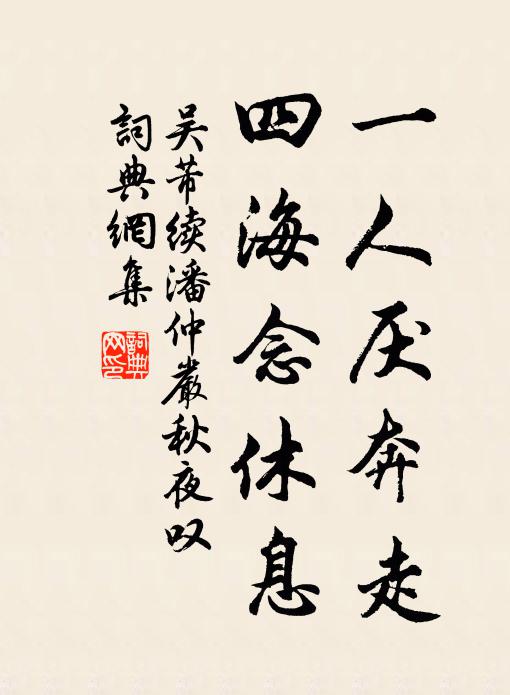 一人厌奔走
四海念休息
吴芾续潘仲嚴秋夜叹
詞典網集
詞典网印